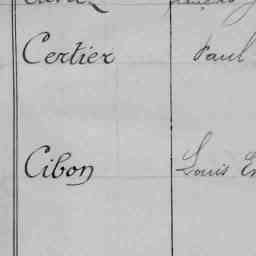 Certier Paul
Cibon Louis